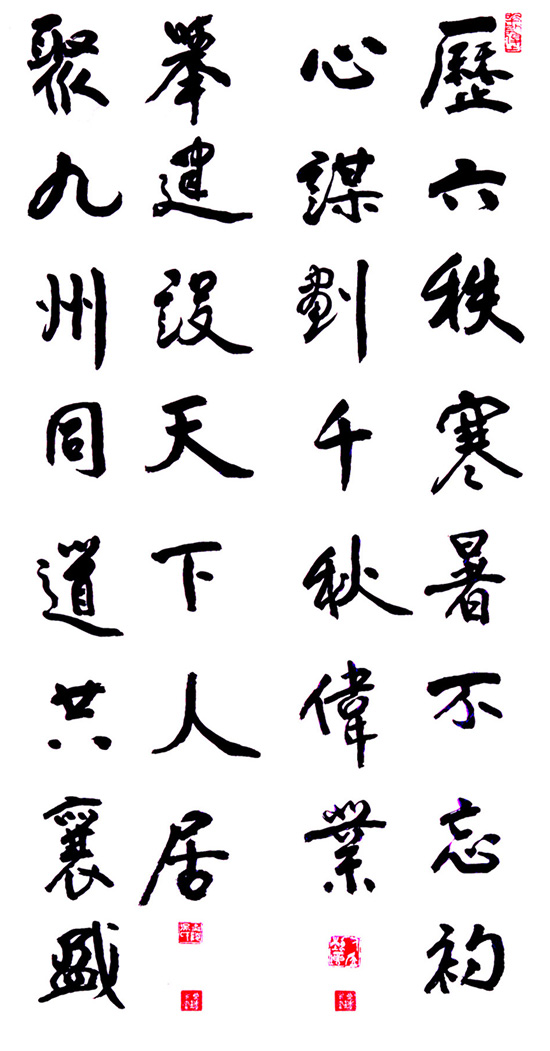 歷六秩寒暑不忘初
心謀劃千秋偉業
聚九州同道共襄盛
舉建設天下人居